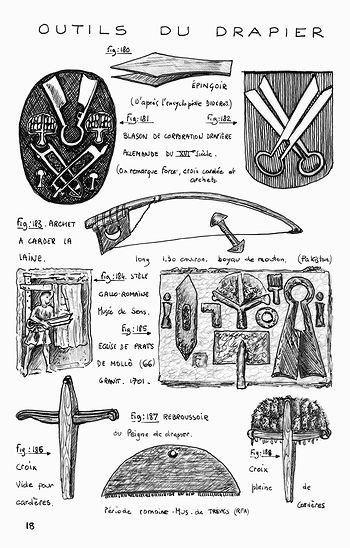 OUTILS DU DRAPIER
Fig: 180
ÉPINÇOIR
(D'après l'encyclopédie DIDEROT)
Fig: 181 Fig: 182
BLASON DE CORPORATION DRAPIÈRE
ALLEMANDE DU XVIème Siècle.
(On remarque Force, croix cardée et
archets
Fig: 183. ARCHET
A CARDER LA
LAINE.
long 1.50 environ. boyau de mouton. (Pakistan)
Fig: 184. STÈLE
GALLO-ROMAINE
Musée de Sens.
Fig: 185.
EGLISE DE PRATS
DE MOLLÒ (66)
GRANIT. 1701.
Fig: 187 REBROUSSOIR
ou Peigne de drapier.
Fig: 186
Croix
Vide pour
cardères.
Croix
pleine de
Cardères
Période romaine. Mus. de TREVES (RFA)
18